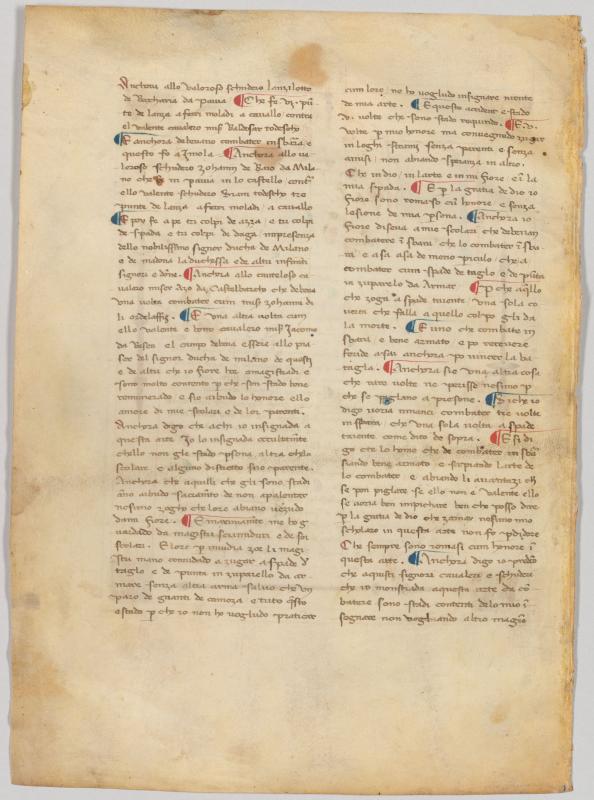 Anchora allo valoroso schudero Lanzilotto
de Becharia da pavia ¶ Che fe .vj. pũ-
te de lanza a ferri moladi a cavallo contra
el valente cavaliero miſ Baldesar todescho
¶ E anchora debevano combater in sbara e
questo fo a Imola. ¶ Anchora allo va-
loroso schudero Zohanin de Baio da Mila-
no che fe in pavia in lo castello contra
ello valente schudero Gram todescho tre
punte de lanza a ferri moladi a cavallo
¶ E poy fe a pe tri colpi de azza e tri colpi
de spada e tri colpi de daga in presenza
dello nobilissimo signor ducha de Milano
e de madona la duchessa e de altri infiniti
signori e done. ¶ Anchora allo cauteloso ca-
valero miser Azo da Castelbarcho che debeva
una volta combater cum miſ zohanni di
li ordelaffi. ¶ E una altra volta cum
ello valente e bono cavaliero miſ Jacomo
da Besen e el campo debeva essere allo pia-
sere del signor ducha de milano de questi
e de altri che io fiore hoe magistradi e
sono molto contento p che son stado bene
remunerado e fio aibudo lo honore ello
amore di mie scolari e de lor parenti.
Anchora digo che a chi io insignada a
questa arte Io lo insignada occultamente
chello non gle stado psona altra chelo
scolare e alguno discreto suo parente.
Anchora che aquilli che gli sono stadi
ano aibudo sacramento de non apalentar
nesimo zogho che loro abiano vezudo
da mi fiore. ¶ E maximamente me ho g-
vardado da magistri scrimidura e de soi
scolari. E loro p invidia zoe li magi-
stri mano convidado a zugar a spade d
taglo e de punta in zuparello da ar-
mare senza altra arma salvo che un
paro de guanti de camoza e tuto questo
e stado p che io non ho vogludo praticar
cum loro ne ho vogludo insignare niente
de mia arte. ¶ E questo acident e stado
v. volte che sono stado requirido. ¶ E v.
volte p mio honore ma convegnudo zugar
in loghi strani senza parenti e senza
amisi non abiando speranza in altro.
Che in dio / in larte e in mi fiore e in la
mia spada. ¶ E p la gratia de dio io
fiore sono romaso cũ honore e senza
lesione de mia psona. ¶ Anchora io
fiore diseva a mie scolari che deberian
combatere ĩ sbara che lo combater ĩ sba-
ra e a sai a sai de meno piriculo che a
combater cum spade de taglo e de punta
in zuparelo da Armar ¶ P che aqllo
che zoga a spade taiente una sola co-
verta che falla a quello colpo gli da
la morte. ¶ E uno che combate in
sbara e bene armado e po recevere
feride asai anchora po vincere la ba-
tagla. ¶ Anchora sie una altra cosa
che rare volte ne perisse nesimo p
che se piglano a presone. ¶ Si che io
digo voria innanci combater tre volte
in sbara che una sola volta a spade
taiente come dito de sopra. ¶ E si di-
go che lo homo che de combater in sba-
siando bene armado e sapiando larte de
lo combater e abiando li avantazi che
se pon piglare se ello non e valente ello
se voria ben impichare ben che posso dire
p la gratia de dio che zamay nesimo mio
scholaro in questa arte non fo pdedore
Che sempre sono romasi cum honore ĩ
questa arte. ¶ Anchora digo io predto
che aquisti signori cavaleri e schuderi
che io monstrada aquesta arte da co-
batere sono stadi contenti de lo mio ĩ-
signare non vogliando altro magistro